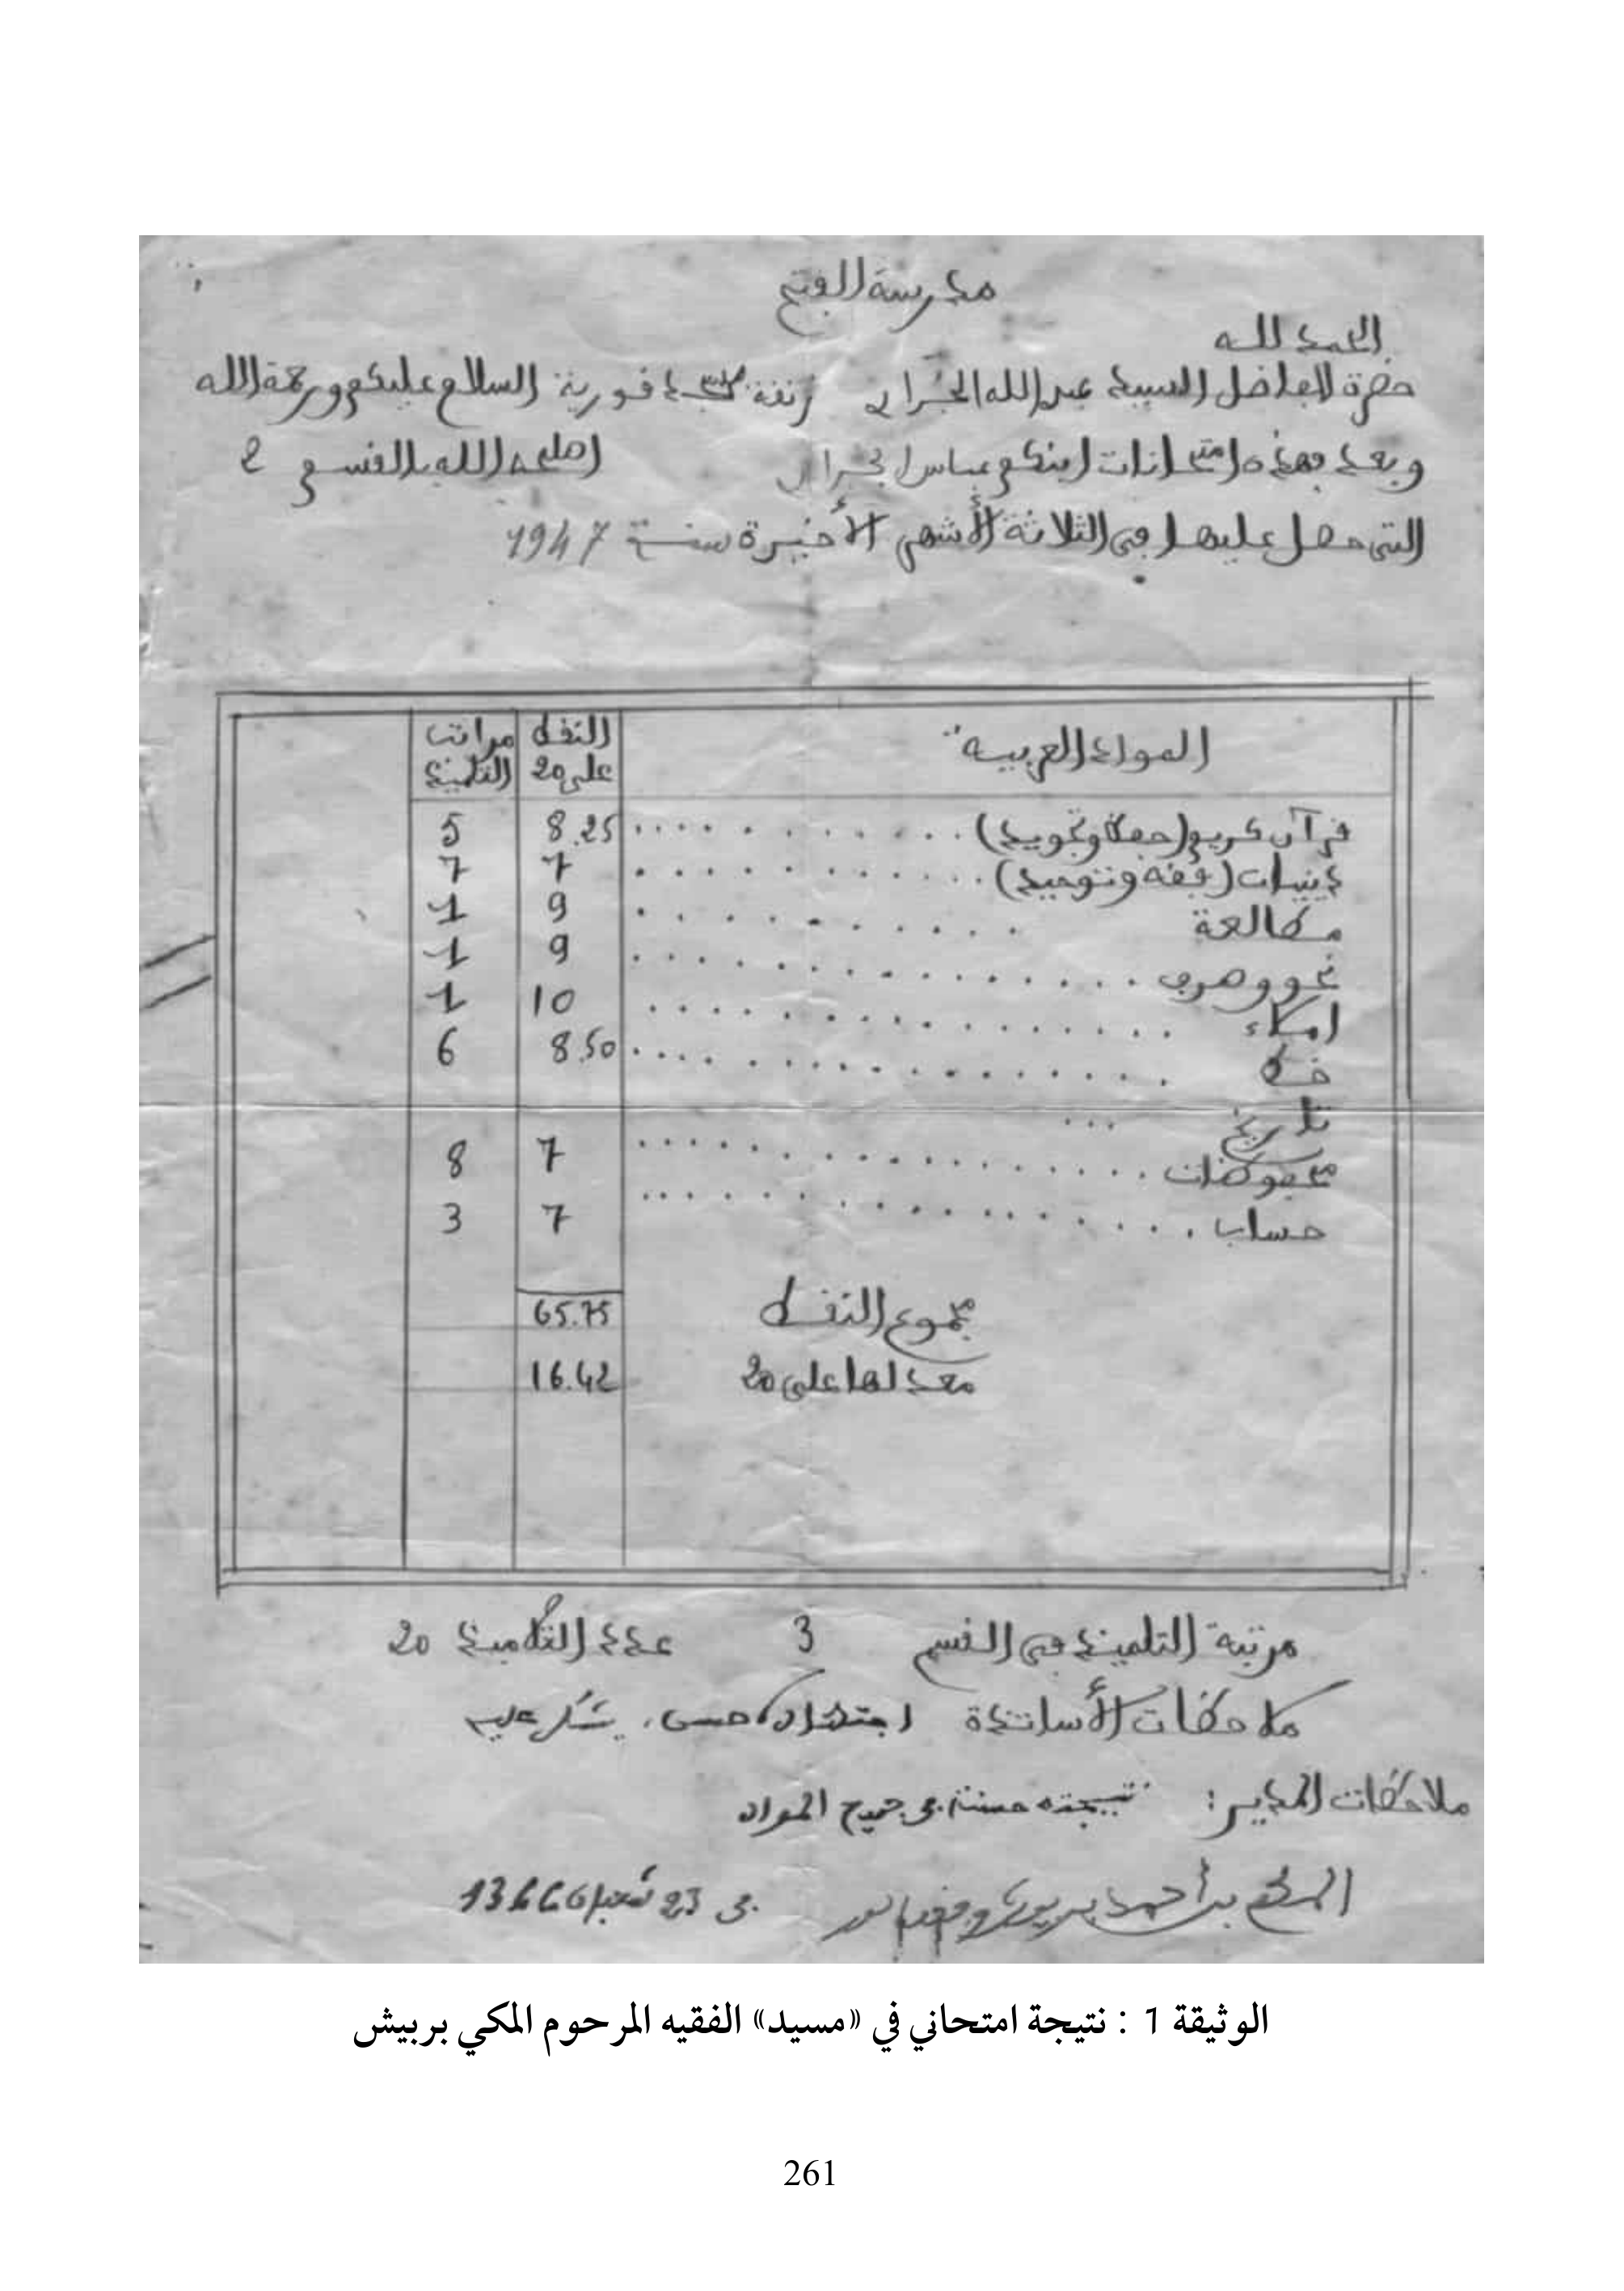 مدرسة الفتح
الحمد لله
حضرة الفاضل السيد عبد الله الجراري زنقة سيدي قورية السلام عليكم ورحمة الله
وبعد فهذه امتحانات ابنكم عباس الجراري اصلحه الله بالقسم 2
التى حصل عليها في الثلاثة الأشهر الأخيرة سنة 1947
المواد العربية النقط على 20 مراتب التلميذ
قرآن كريم (حفظ وتجويد) 8.25 5
دينيات (فقه وتوحيد) 7 7
مطالعة 9 1
نحو وصرف 9 1
إملاء 10 1
خط 8.50 6
تاريخ ...
محفوظات 7 8
حساب 7 3
مجموع النقط 65.75
معدلها على 20 16.42
مرتبة التلميذ في القسم 3 عدد التلاميذ 20
ملاحظات الأساتذة اجتهاده حسن، يشكر عليه
ملاحظات المدير: نتيجته حسنة في جميع المواد
المكي بن أحمد بربيش وفقه الله في 23 شعبان 1366
الوثيقة 1 : نتيجة امتحاني في «مسيد» الفقيه المرحوم المكي بربيش
261